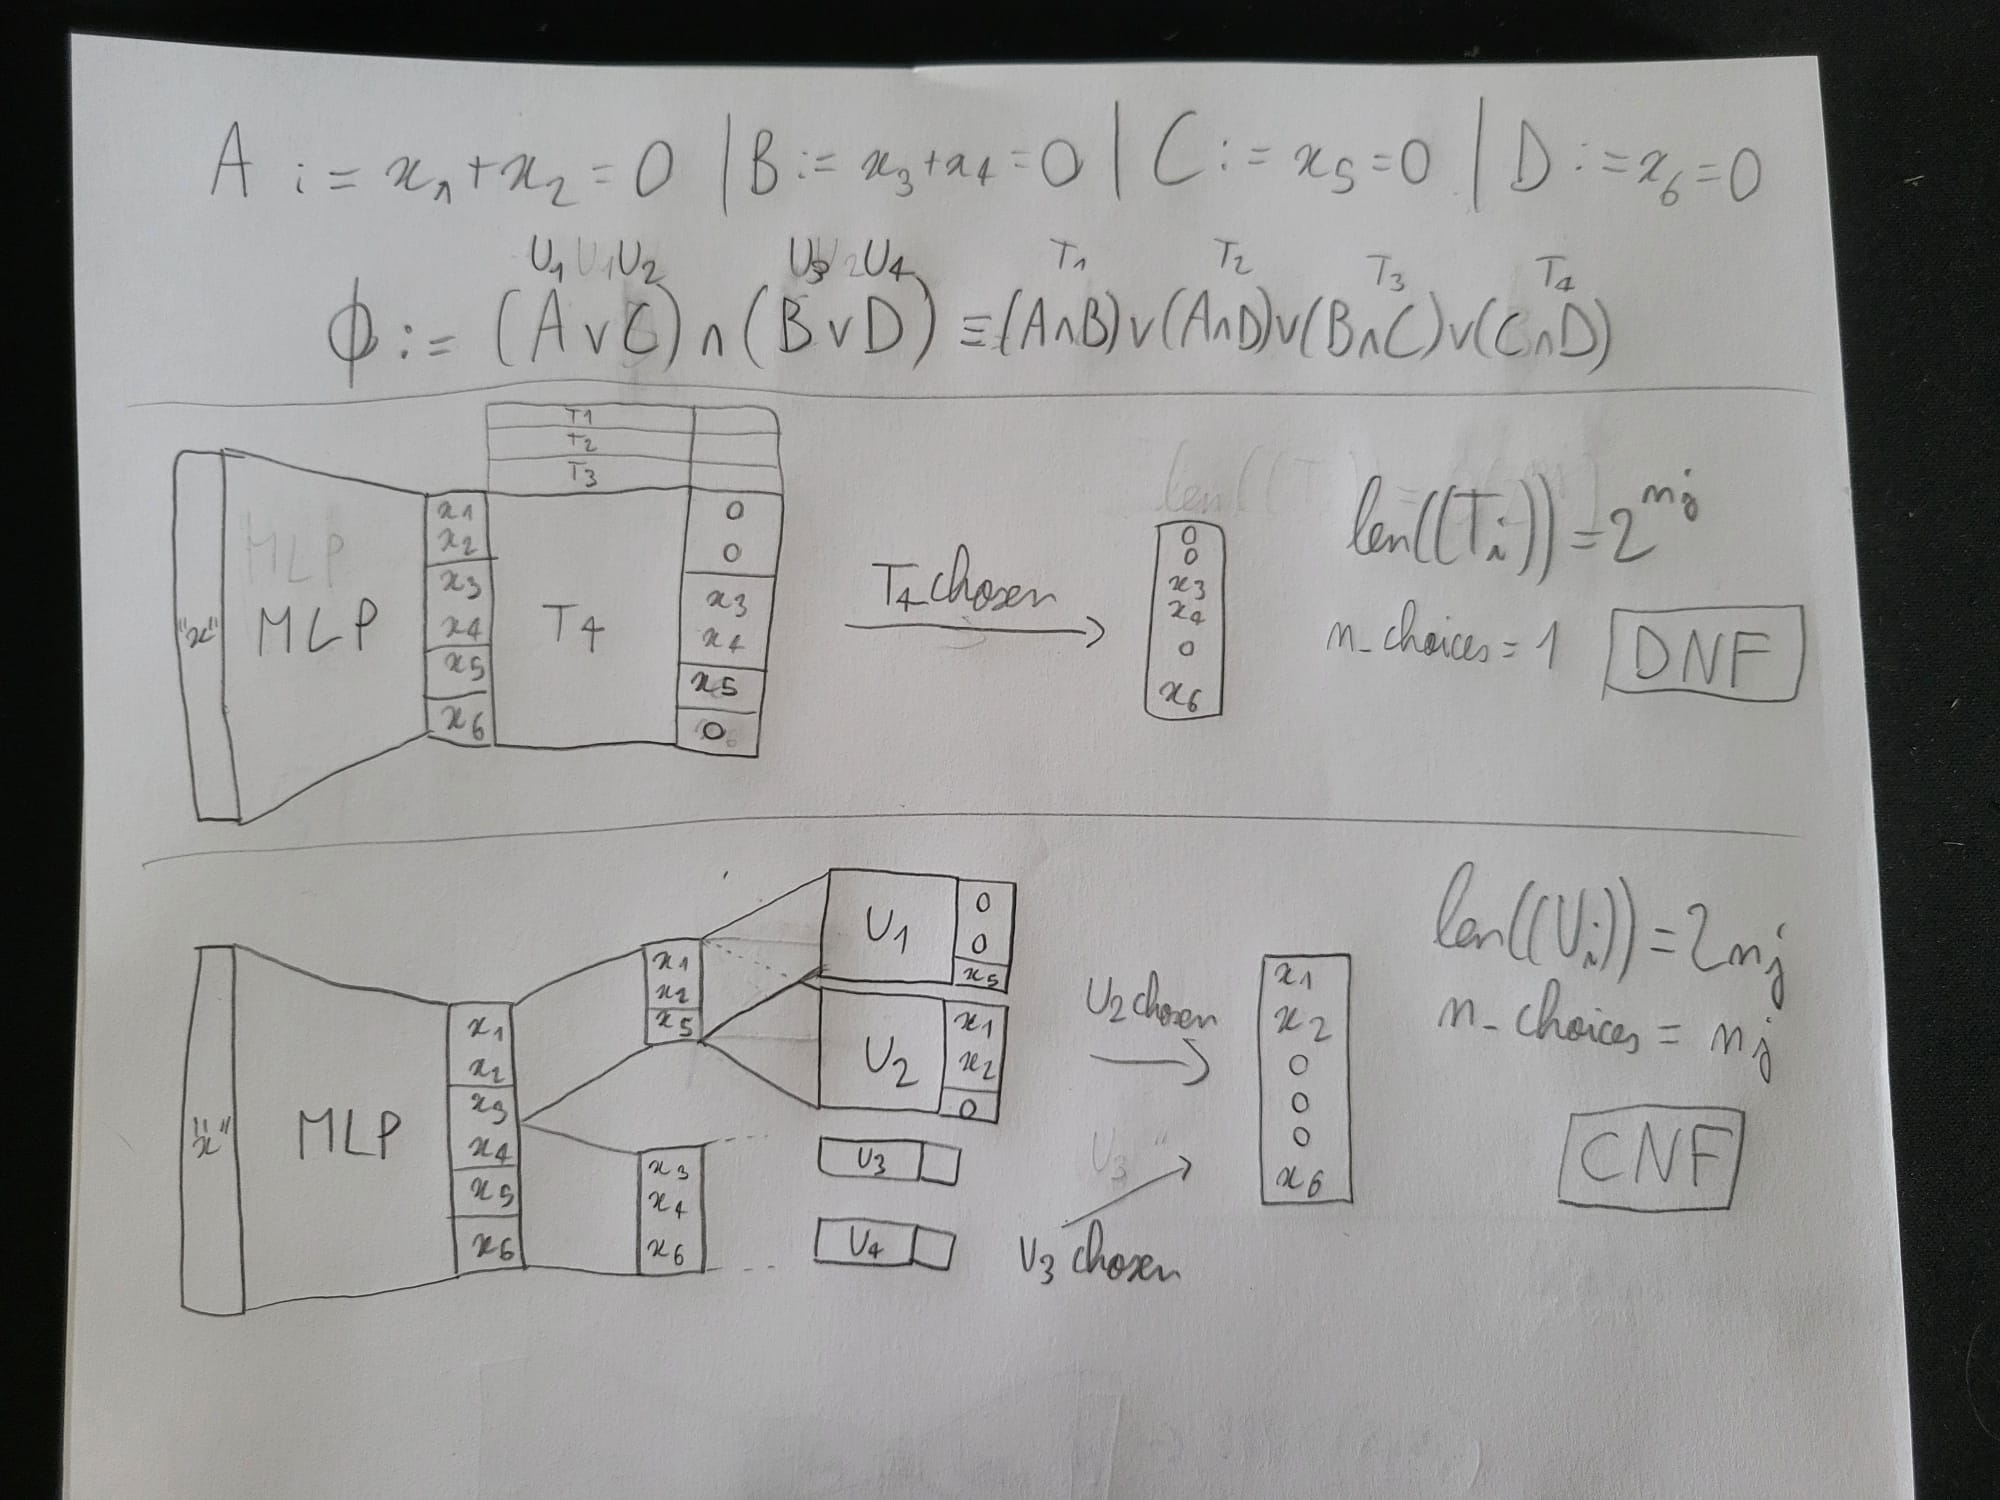 A := x₁+x₂=0 | B := x₃+x₄=0 | C := x₅=0 | D := x₆=0
U₁ U₂ U₃ U₄ T₁ T₂ T₃ T₄
ϕ := (A∨C)∧(B∨D) ≡ (A∧B)∨(A∧D)∨(B∧C)∨(C∧D)
T1
T2
T3
"x"
MLP
x1
x2
x3
x4
x5
x6
T4
0
0
x3
x4
x5
0
T4 chosen
0
0
x3
x4
0
x6
len((Tᵢ))=2^nj
n_choices=1
DNF
"x"
MLP
x1
x2
x3
x4
x5
x6
x1
x2
x5
x3
x4
x6
U1
0
0
x5
U2
x1
x2
0
U3
U4
U2 chosen
U3 chosen
x1
x2
0
0
0
x6
len((Uᵢ))=2nj
n_choices = nj
CNF